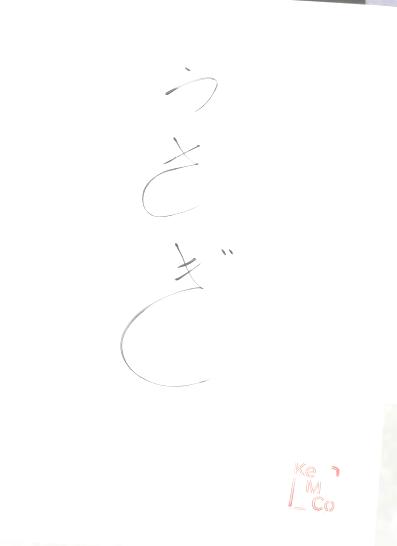 うさぎ
Ke
M
Co